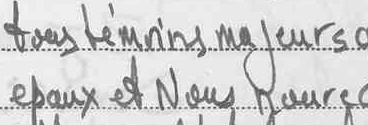 tous témoins majeurs
epaux et Nous